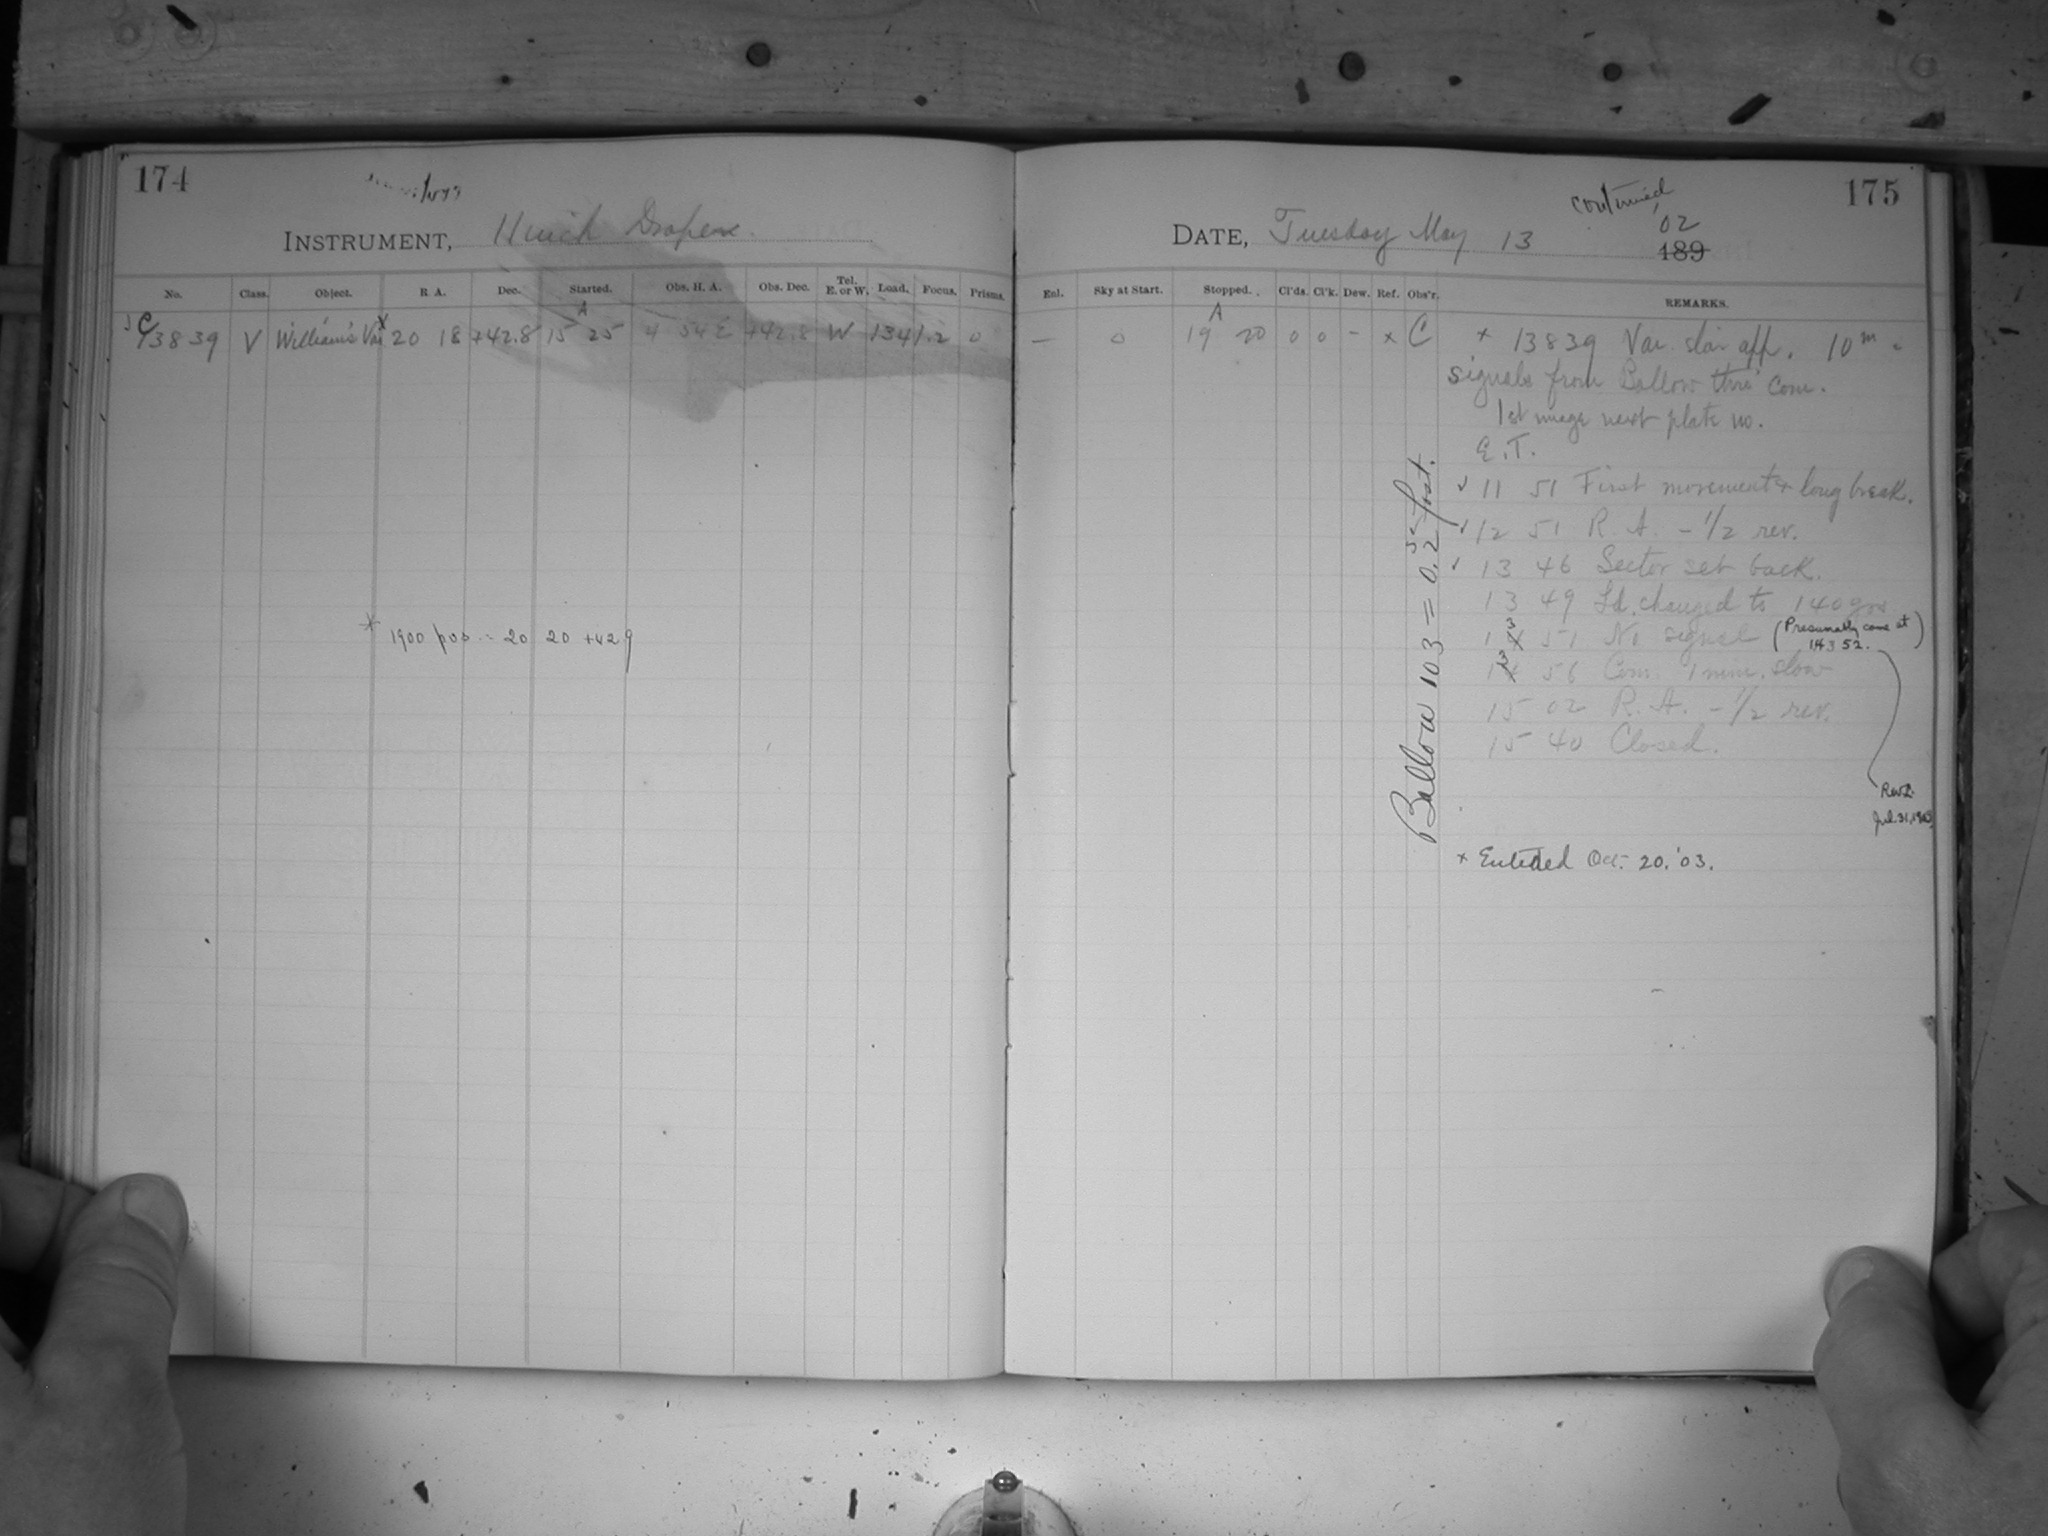 174
INSTRUMENT, 11 inch Draper.
No. Class. Object. R A. Dec. Started. Obs. H. A. Obs. Dec. Tel. E. or W. Load. Focus. Prisms.
C 13839 V William's Var x 20 18 +42.8 A 15 25 4 54 E +42.8 W 134 1.2 0
* 1900 pos = 20 20 +42 9
175
continued
DATE, Tuesday May 13 '02
189
Eol. Sky at Start. Stopped. Cl'ds. Cl'k. Dew. Ref. Obs'r. REMARKS.
— 0 A 19 20 0 0 - x C
x 13839 Var. star app. 10 m.
signals from Ballou thro' Com.
1st image next plate no.
E.T.
√ 11 51 First movement + long break.
√ 12 51 R. A. - 1/2 rev.
√ 13 46 Sector set back.
13 49 Ld. changed to 140 grs
13 51 No signal (Presumably came at 13 52.)
13 56 Com. 1 min. slow
15 02 R. A. - 1/2 rev.
15 40 Closed.
Jul. 31, 1903
x Entered Oct. 20, '03.
Ballou 103 = 0.25 fast.